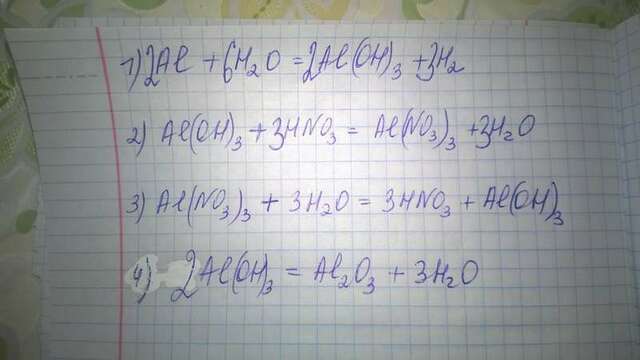 1) 2Al + 6H₂O = 2Al(OH)₃ + 3H₂
2) Al(OH)₃ + 3HNO₃ = Al(NO₃)₃ + 3H₂O
3) Al(NO₃)₃ + 3H₂O = 3HNO₃ + Al(OH)₃
4) 2Al(OH)₃ = Al₂O₃ + 3H₂O